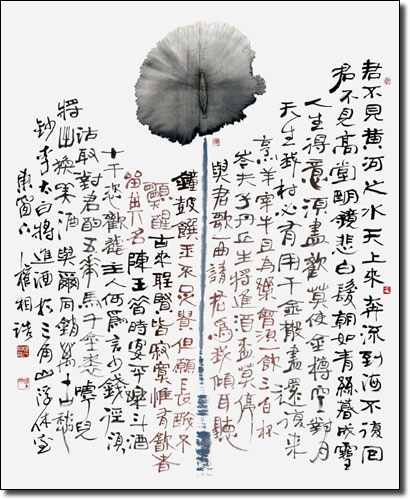 君不見黃河之水天上來奔流到海不復回
君不見高堂明鏡悲白髮朝如青絲暮成雪
人生得意須盡歡莫使金樽空對月
天生我材必有用千金散盡還復來
烹羊宰牛且為樂會須一飲三百杯
岑夫子丹丘生將進酒杯莫停
與君歌一曲請君為我傾耳聽
鐘鼓饌玉不足貴但願長醉不
願醒古來聖賢皆寂寞惟有飲者
留其名陳王昔時宴平樂斗酒
十千恣歡謔主人何為言少錢徑須
沽取對君酌五花馬千金裘呼兒
將出換美酒與爾同銷萬古愁
鈔李太白將進酒於三角山浮休室
東窗下人權相浩